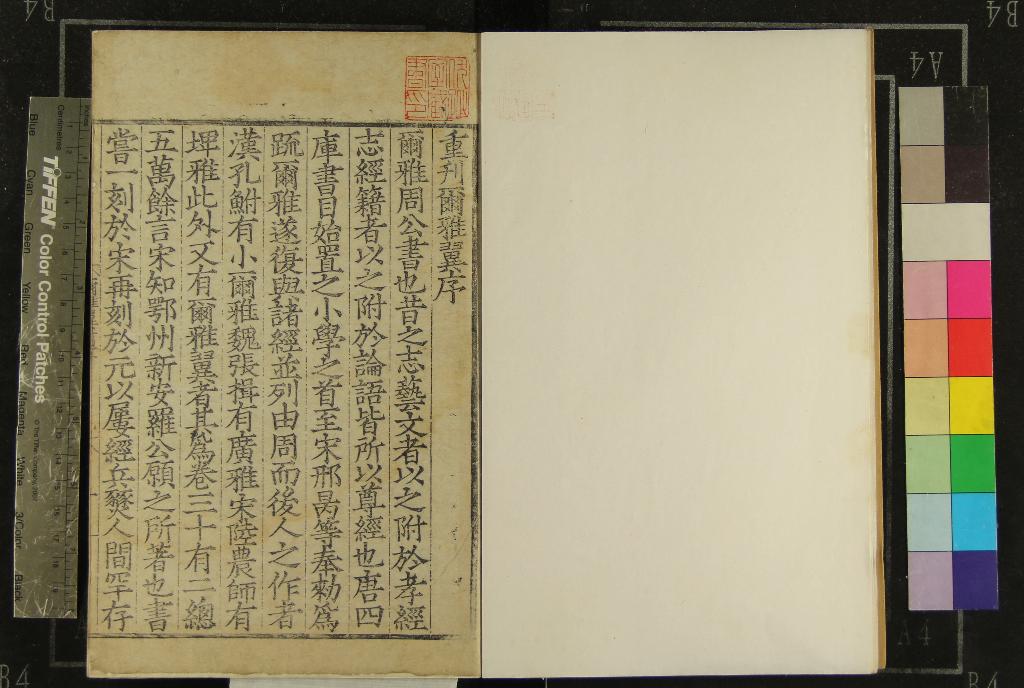 重刋爾雅翼序
爾雅周公書也昔之志藝文者以之附於孝經
志經籍者以之附於論語皆所以尊經也唐四
庫書目始置之小學之首至宋邢昺等奉勑爲
䟽爾雅遂復與諸經並列由周而後人之作者
漢孔鮒有小爾雅魏張揖有廣雅宋陸農師有
埤雅此外又有爾雅翼者其爲卷三十有二總
五萬餘言宋知鄂州新安羅公願之所著也書
嘗一刻於宋再刻於元以屢經兵燹人間罕存
TIFFEN Color Control Patches
© The Tiffen Company, 2007
Centimetres
Blue
Cyan
Green
Yellow
Red
Magenta
White
3/Color
Black
B4
B4
A4
A4
B4
B4